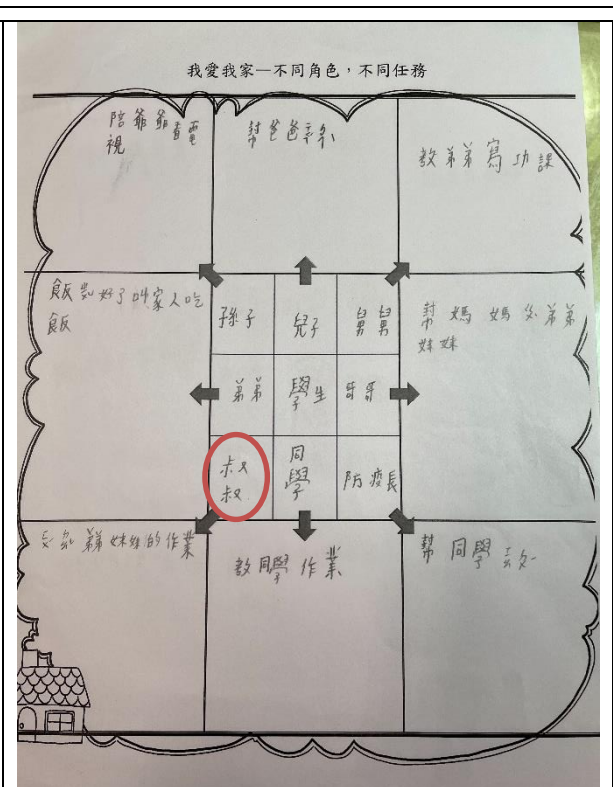 我愛我家—不同角色,不同任務
陪爺爺看電
視
幫爸爸
教弟弟寫功課
飯煮好了叫家人吃
飯
孫子
兒子
舅舅
幫媽媽 弟弟
妹妹
弟弟
學生
哥哥
叔
叔
同
學
防疫長
弟弟妹妹的作業
教同學作業
幫同學